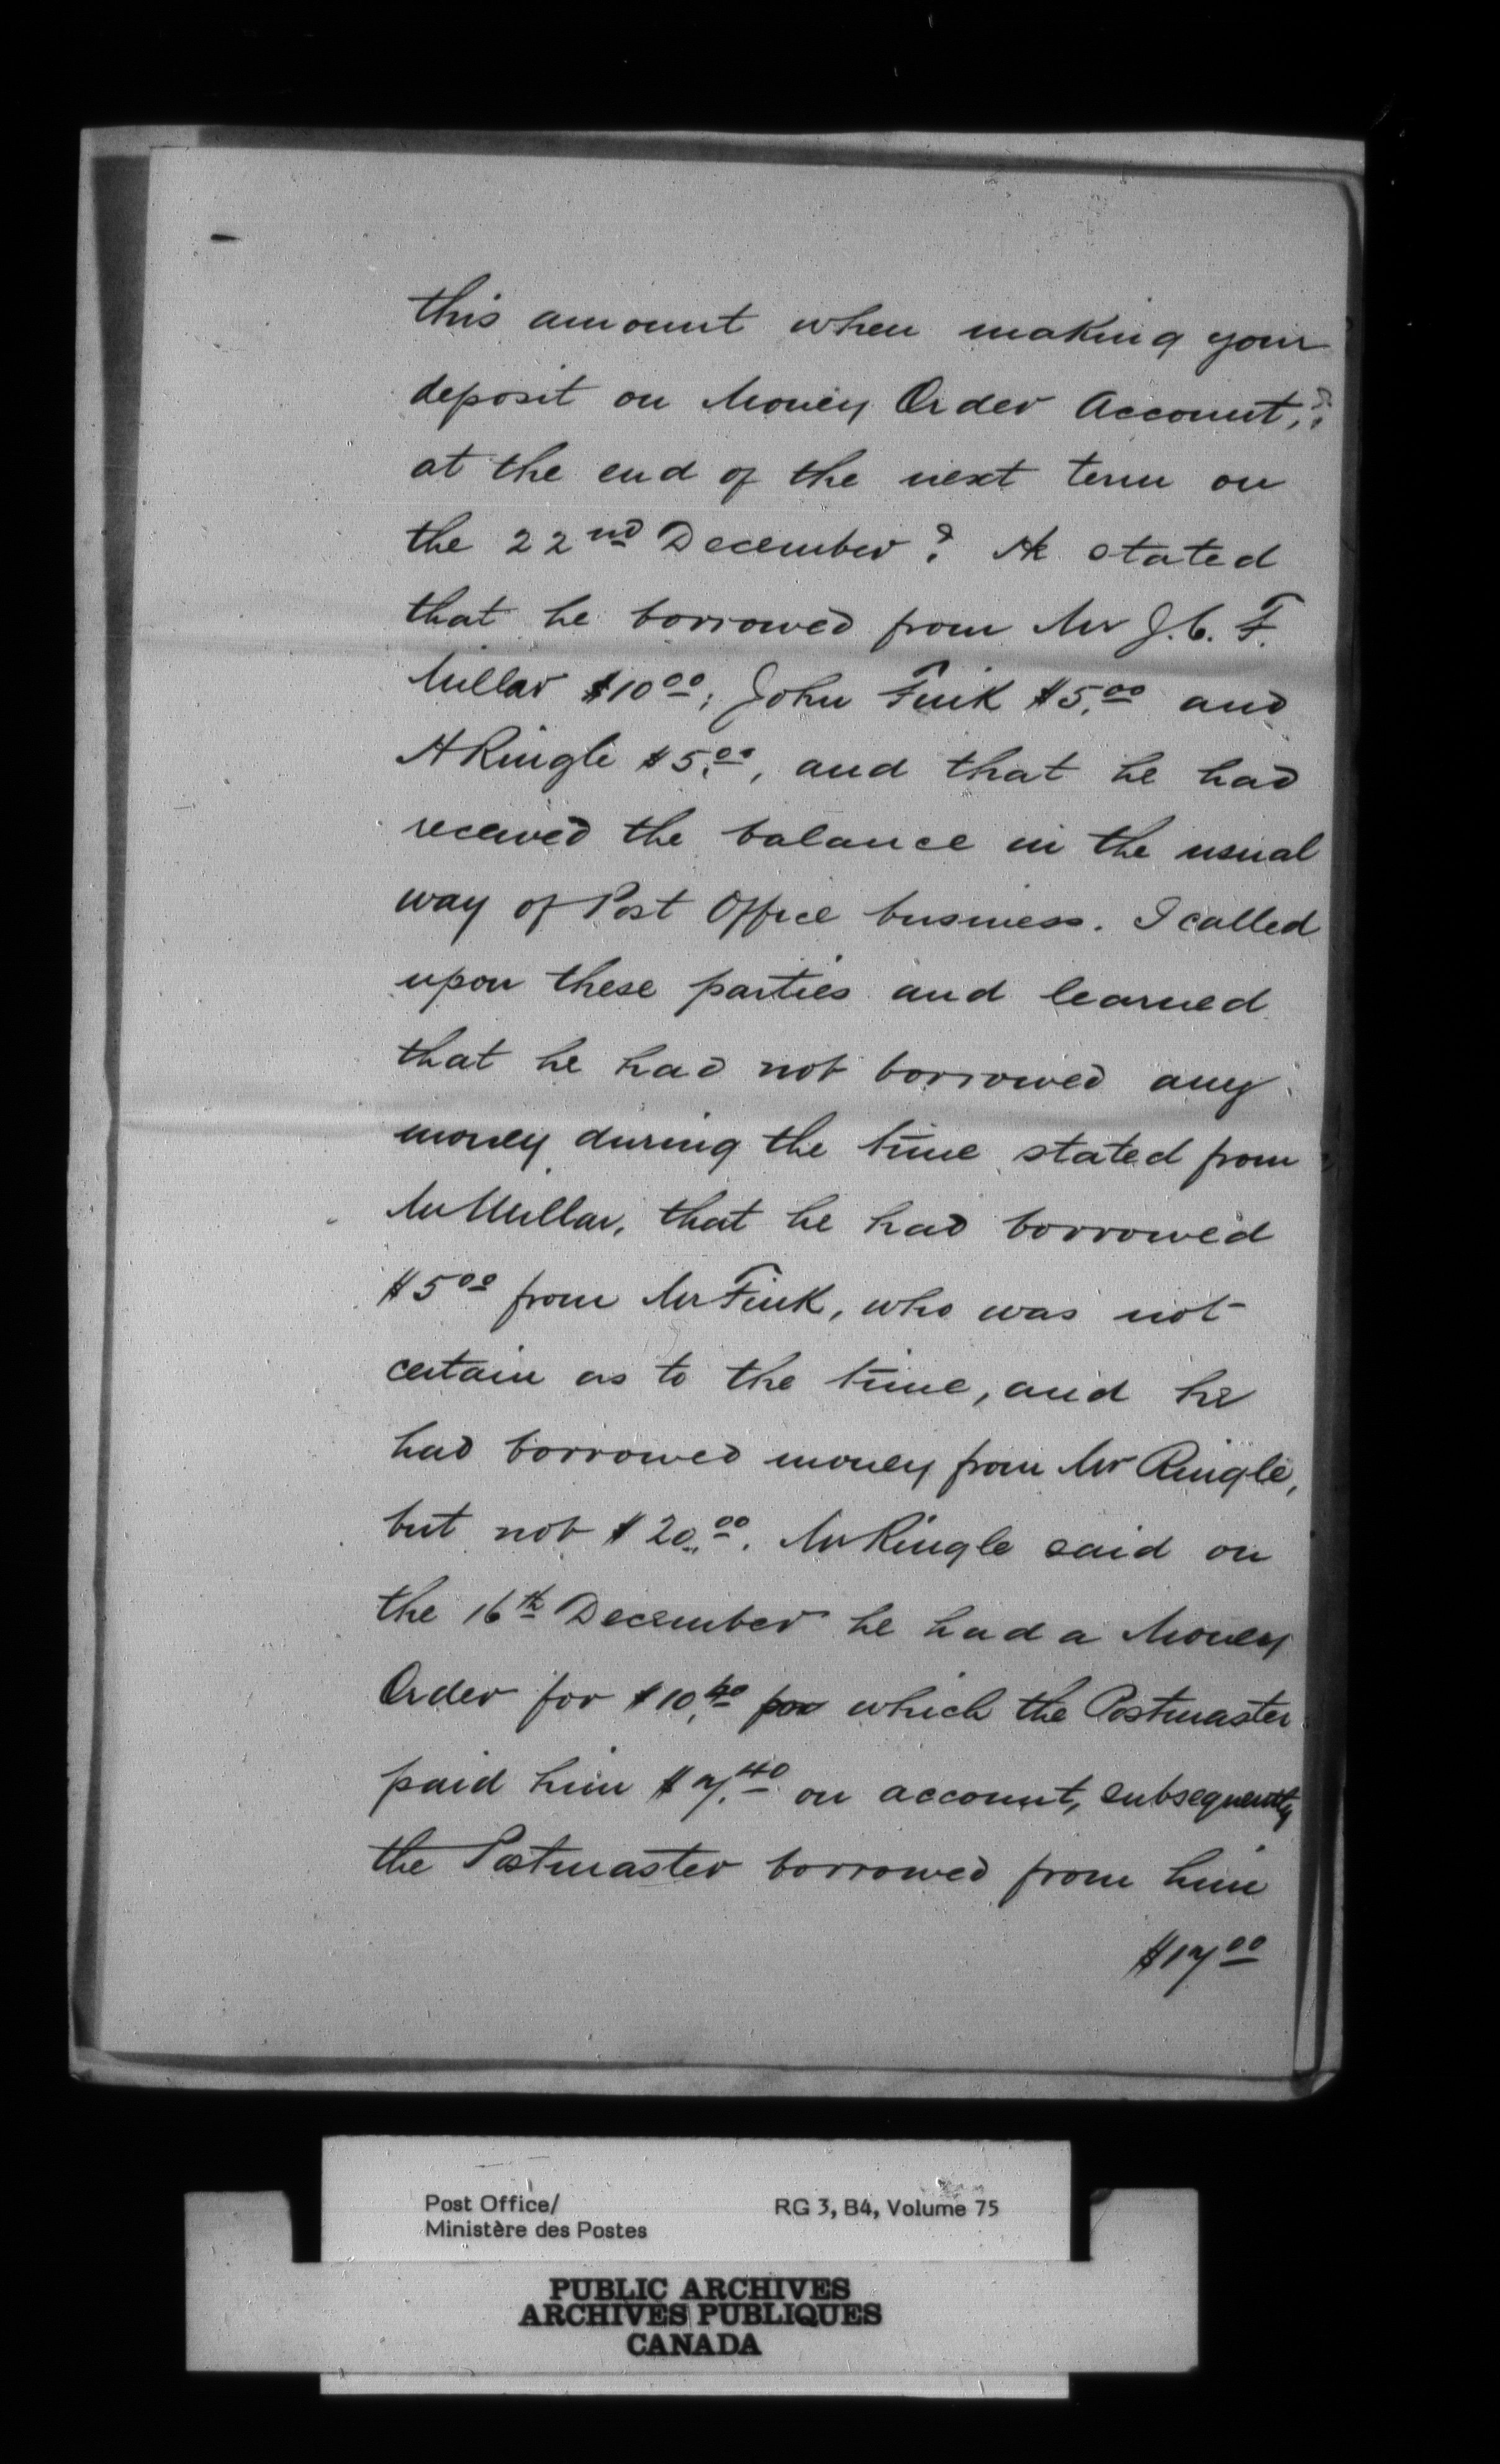 this amount when making your
deposit on Money Order Account,?
at the end of the next term on
the 22nd December? He stated
that he borrowed from Mr J. C. F.
Millar $10.00; John Fink $5.00 and
A Ringle $5.00, and that he had
received the balance in the usual
way of Post Office business. I called
upon these parties and learned
that he had not borrowed any
money during the time stated from
Mr Millar, that he had borrowed
$5.00 from Mr Fink, who was not
certain as to the time, and he
had borrowed money from Mr Ringle,
but not $20.00. Mr Ringle said on
the 16th December he had a Money
Order for $10.40 for which the Postmaster
paid him $7.40 on account, subsequently
the Postmaster borrowed from him
$17.00
Post Office/ RG 3, B4, Volume 75
Ministère des Postes
PUBLIC ARCHIVES
ARCHIVES PUBLIQUES
CANADA